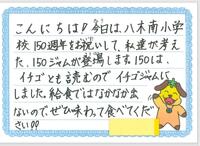 こんにちは!!今日は、八木南小学
校150週年をお祝いして、私達が考え
た、150ジャムが登場します。150は、
イチゴとも読むので イチゴジャムに
しました。給食ではなかなか出
ないので、ぜひ味わって食べてくだ
さい!!